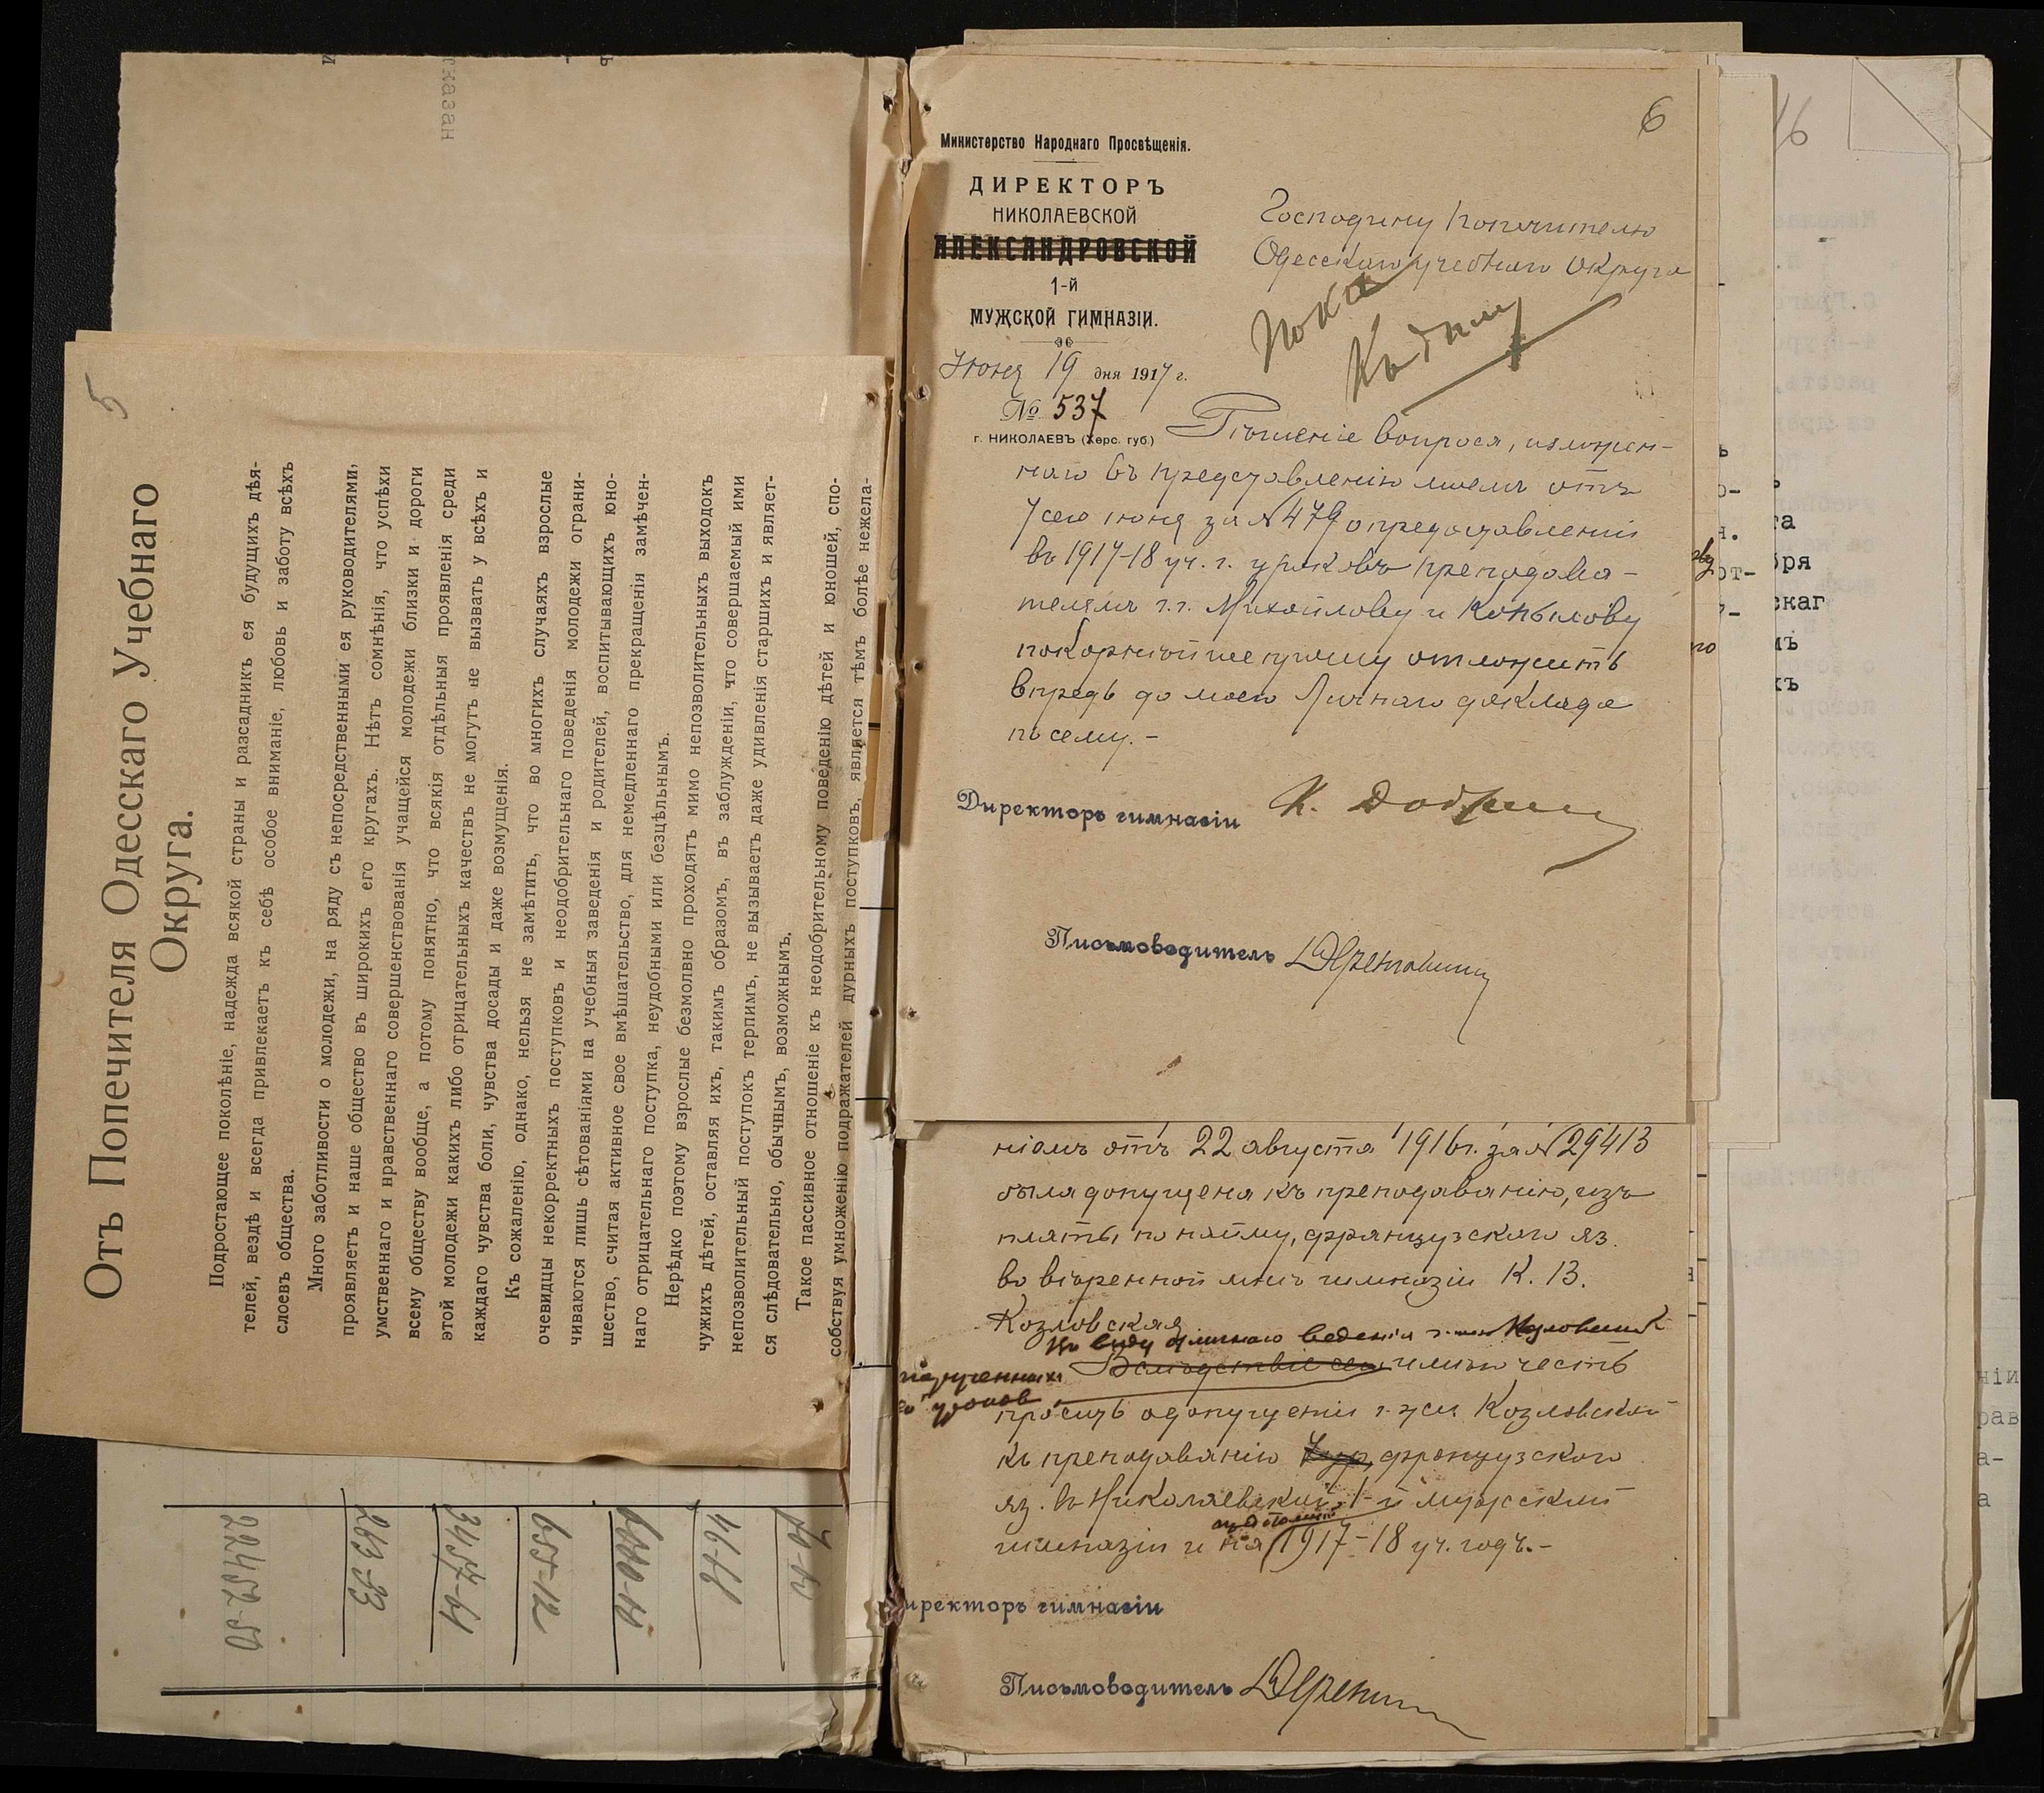 5
Отъ Попечителя Одесскаго Учебнаго
Округа.
Подростающее поколѣніе, надежда всякой страны и разсадникъ ея будущихъ дѣя-
телей, вездѣ и всегда привлекаетъ къ себѣ особое вниманіе, любовь и заботу всѣхъ
слоевъ общества.
Много заботливости о молодежи, на ряду съ непосредственными ея руководителями,
проявляетъ и наше общество въ широкихъ его кругахъ. Нѣтъ сомнѣнія, что успѣхи
умственнаго и нравственнаго совершенствованія учащейся молодежи близки и дороги
всему обществу вообще, а потому понятно, что всякія отдѣльныя проявленія среди
этой молодежи какихъ либо отрицательныхъ качествъ не могутъ не вызвать у всѣхъ и
каждаго чувства боли, чувства досады и даже возмущенія.
Къ сожалѣнію, однако, нельзя не замѣтить, что во многихъ случаяхъ взрослые
очевидцы некорректныхъ поступковъ и неодобрительнаго поведенія молодежи ограни-
чиваются лишь сѣтованіями на учебныя заведенія и родителей, воспитывающихъ юно-
шество, считая активное свое вмѣшательство, для немедленнаго прекращенія замѣчен-
наго отрицательнаго поступка, неудобными или безцѣльнымъ.
Нерѣдко поэтому взрослые безмолвно проходятъ мимо непозволительныхъ выходокъ
чужихъ дѣтей, оставляя ихъ, такимъ образомъ, въ заблужденіи, что совершаемый ими
непозволительный поступокъ терпимъ, не вызываетъ даже удивленія старшихъ и являет-
ся слѣдовательно, обычнымъ, возможнымъ.
Такое пассивное отношеніе къ неодобрительному поведенію дѣтей и юношей, спо-
собствуя умноженію подражателей дурныхъ поступковъ, является тѣмъ болѣе нежела-
6
Министерство Народнаго Просвѣщенія.
ДИРЕКТОРЪ
НИКОЛАЕВСКОЙ
АЛЕКСАНДРОВСКОЙ
1-й
МУЖСКОЙ ГИМНАЗІИ.
Іюня 19 дня 1917 г.
№ 537
г. НИКОЛАЕВЪ (Херс. губ.)
Господину Попечителю
Одесскаго Учебнаго Округа
Пока
Къ дѣлу
Рѣшеніе вопроса, изложен-
наго въ представленіи моемъ отъ
7 сего іюня за № 479 о предоставленіи
въ 1917-18 уч. г. уроковъ преподава-
телямъ г.г. Михайлову и Копылову
покорнѣйше прошу отложить
впредь до моего личнаго доклада
по сему. -
Директоръ гимназіи
Письмоводитель
ніемъ отъ 22 августа 1916 г. за № 29413
была допущена къ преподаванію, изъ
платы по найму, французскаго яз.
во ввѣренной мнѣ гимназіи К. В.
Козловская
Въ виду отличнаго веденія г-жею Козловской
порученныхъ
ей уроков
Вслѣдствіе сего имѣю честь
просить о допущеніи г-жи Козловской
къ преподаванію французскаго
яз. въ Николаевской 1-й мужской
гимназіи и на 1917-18 уч. годъ. -
иректоръ гимназіи
Письмоводитель